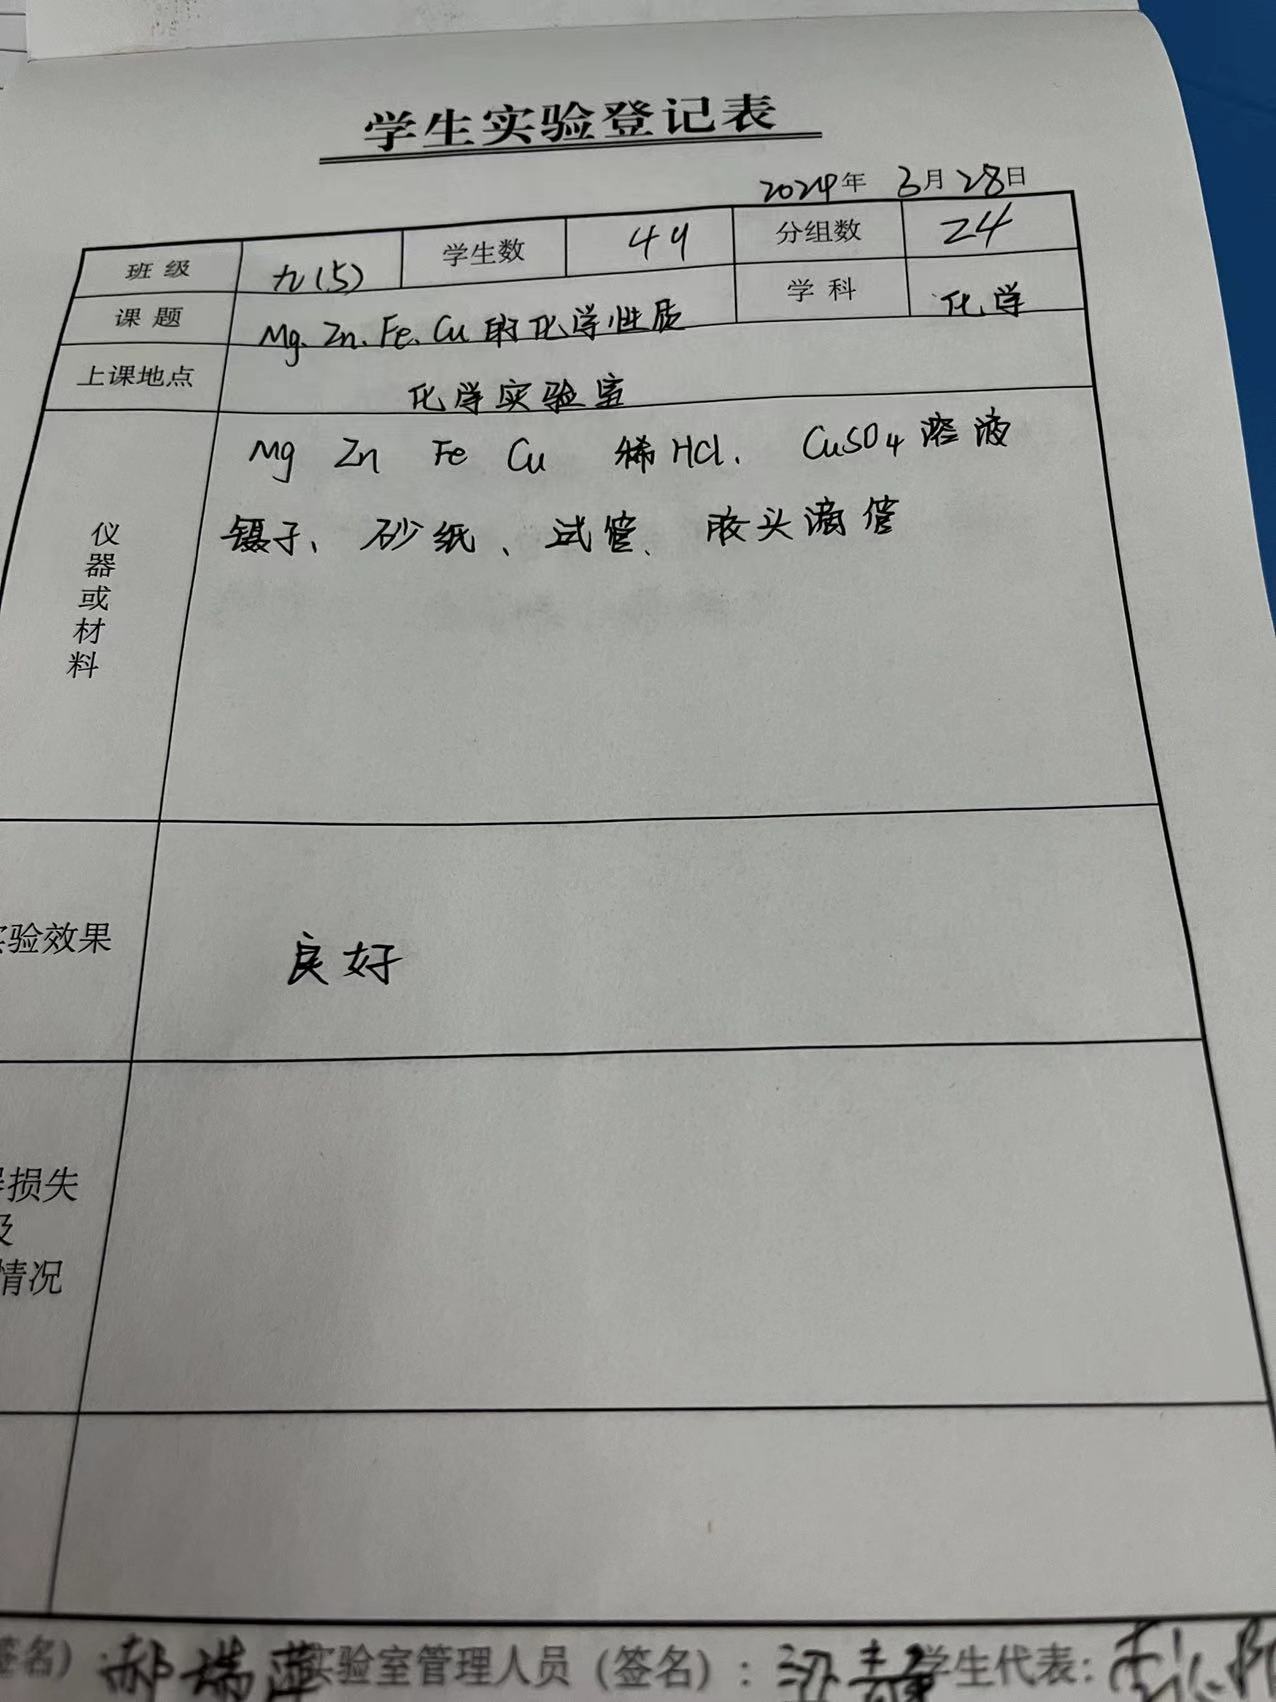 学生实验登记表
2024年 3月28日
班级 九(5) 学生数 44 分组数 24
课题 Mg、Zn、Fe、Cu的化学性质 学科 化学
上课地点 化学实验室
仪器或材料
Mg Zn Fe Cu 稀HCl、 CuSO4溶液
镊子、砂纸、试管、胶头滴管
验效果 良好
损失
及
情况
签名) 郝瑞萍 实验室管理人员(签名): 学生代表: